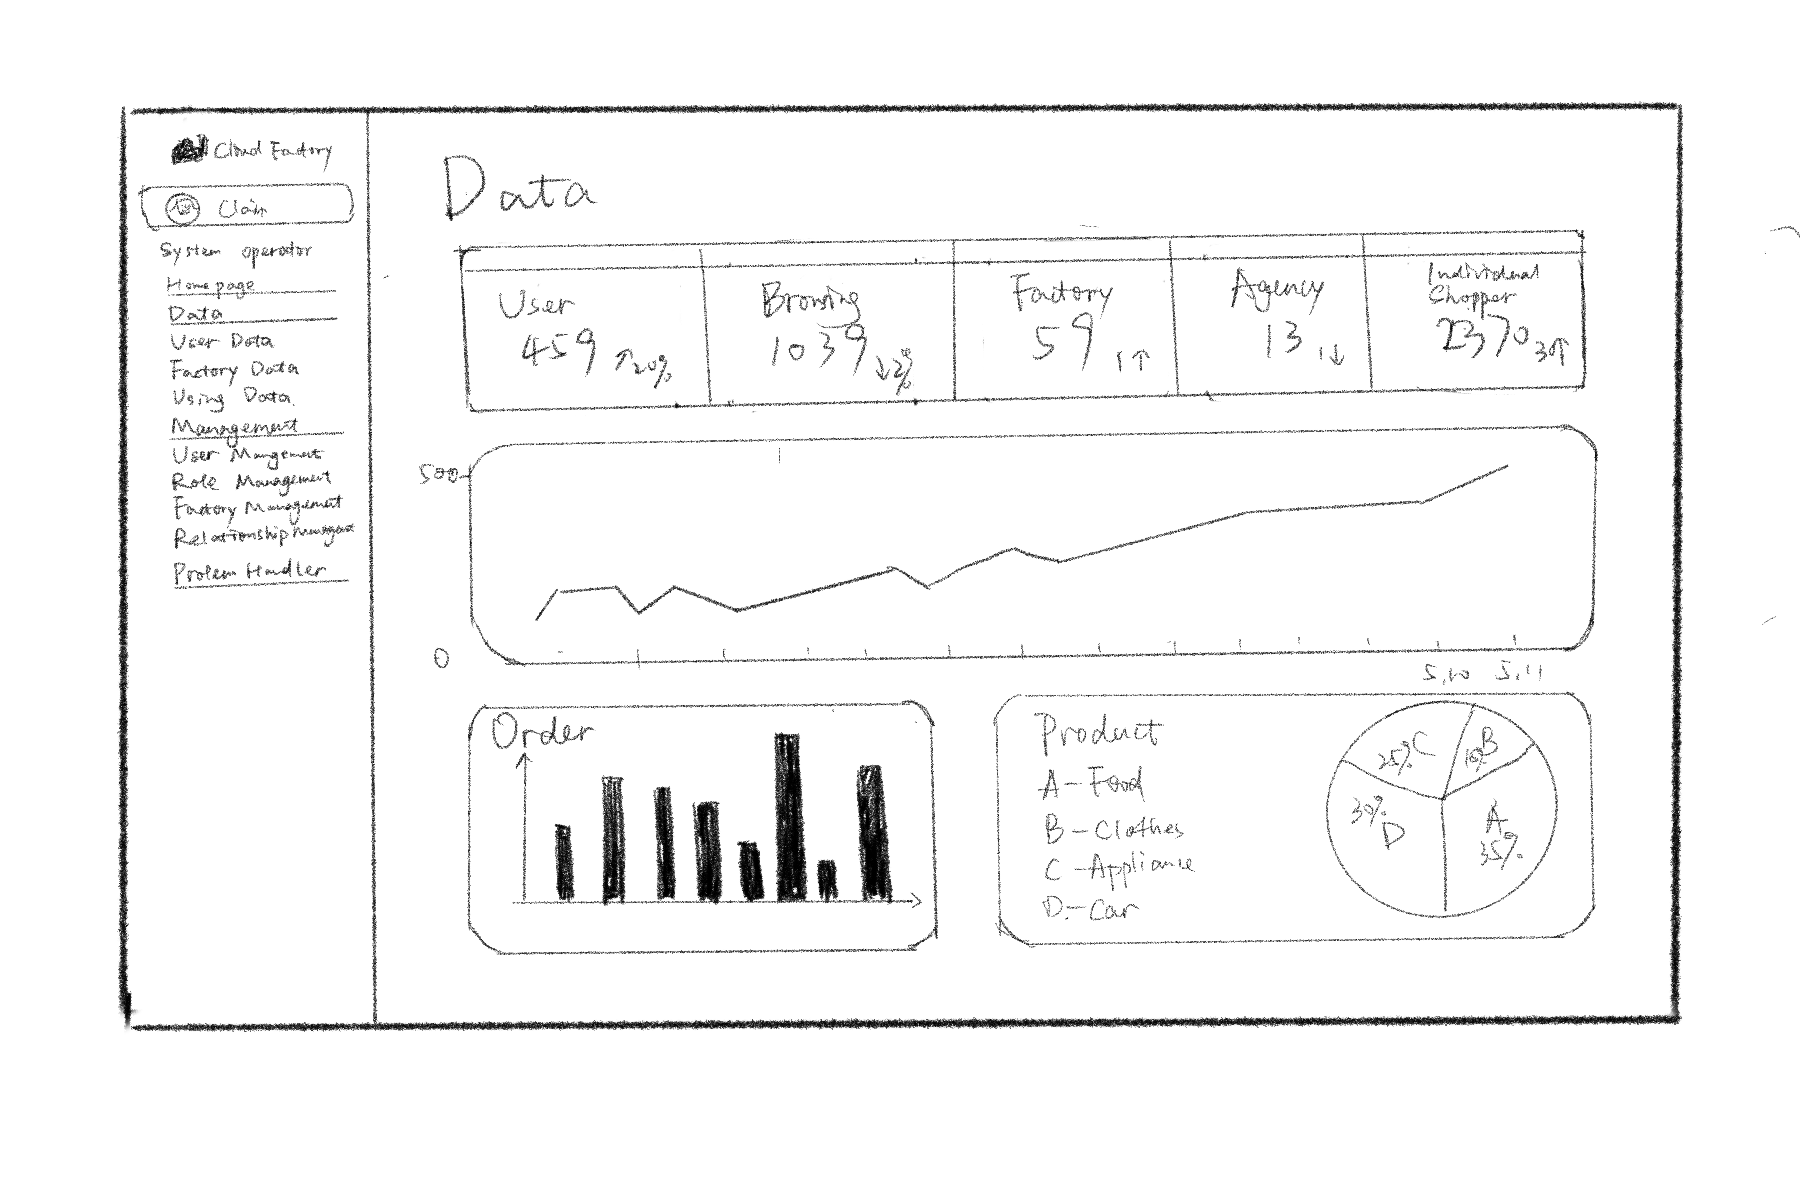 Cloud Factory
Clair
System operator
Homepage
Data
User Data
Factory Data
Using Data
Management
User Mangement
Role Management
Factory Management
Relationship
Prolem Handler
Data
User
459 ↑20%
Browing
1039 ↓2%
Factory
59 1↑
Agency
13 1↓
Individual
Chopper
2370 30↑
500
0
5.10 5.11
Order
Product
A-Food
B-Clothes
C-Appliance
D-Car
25% C
10% B
30% D
A 35%